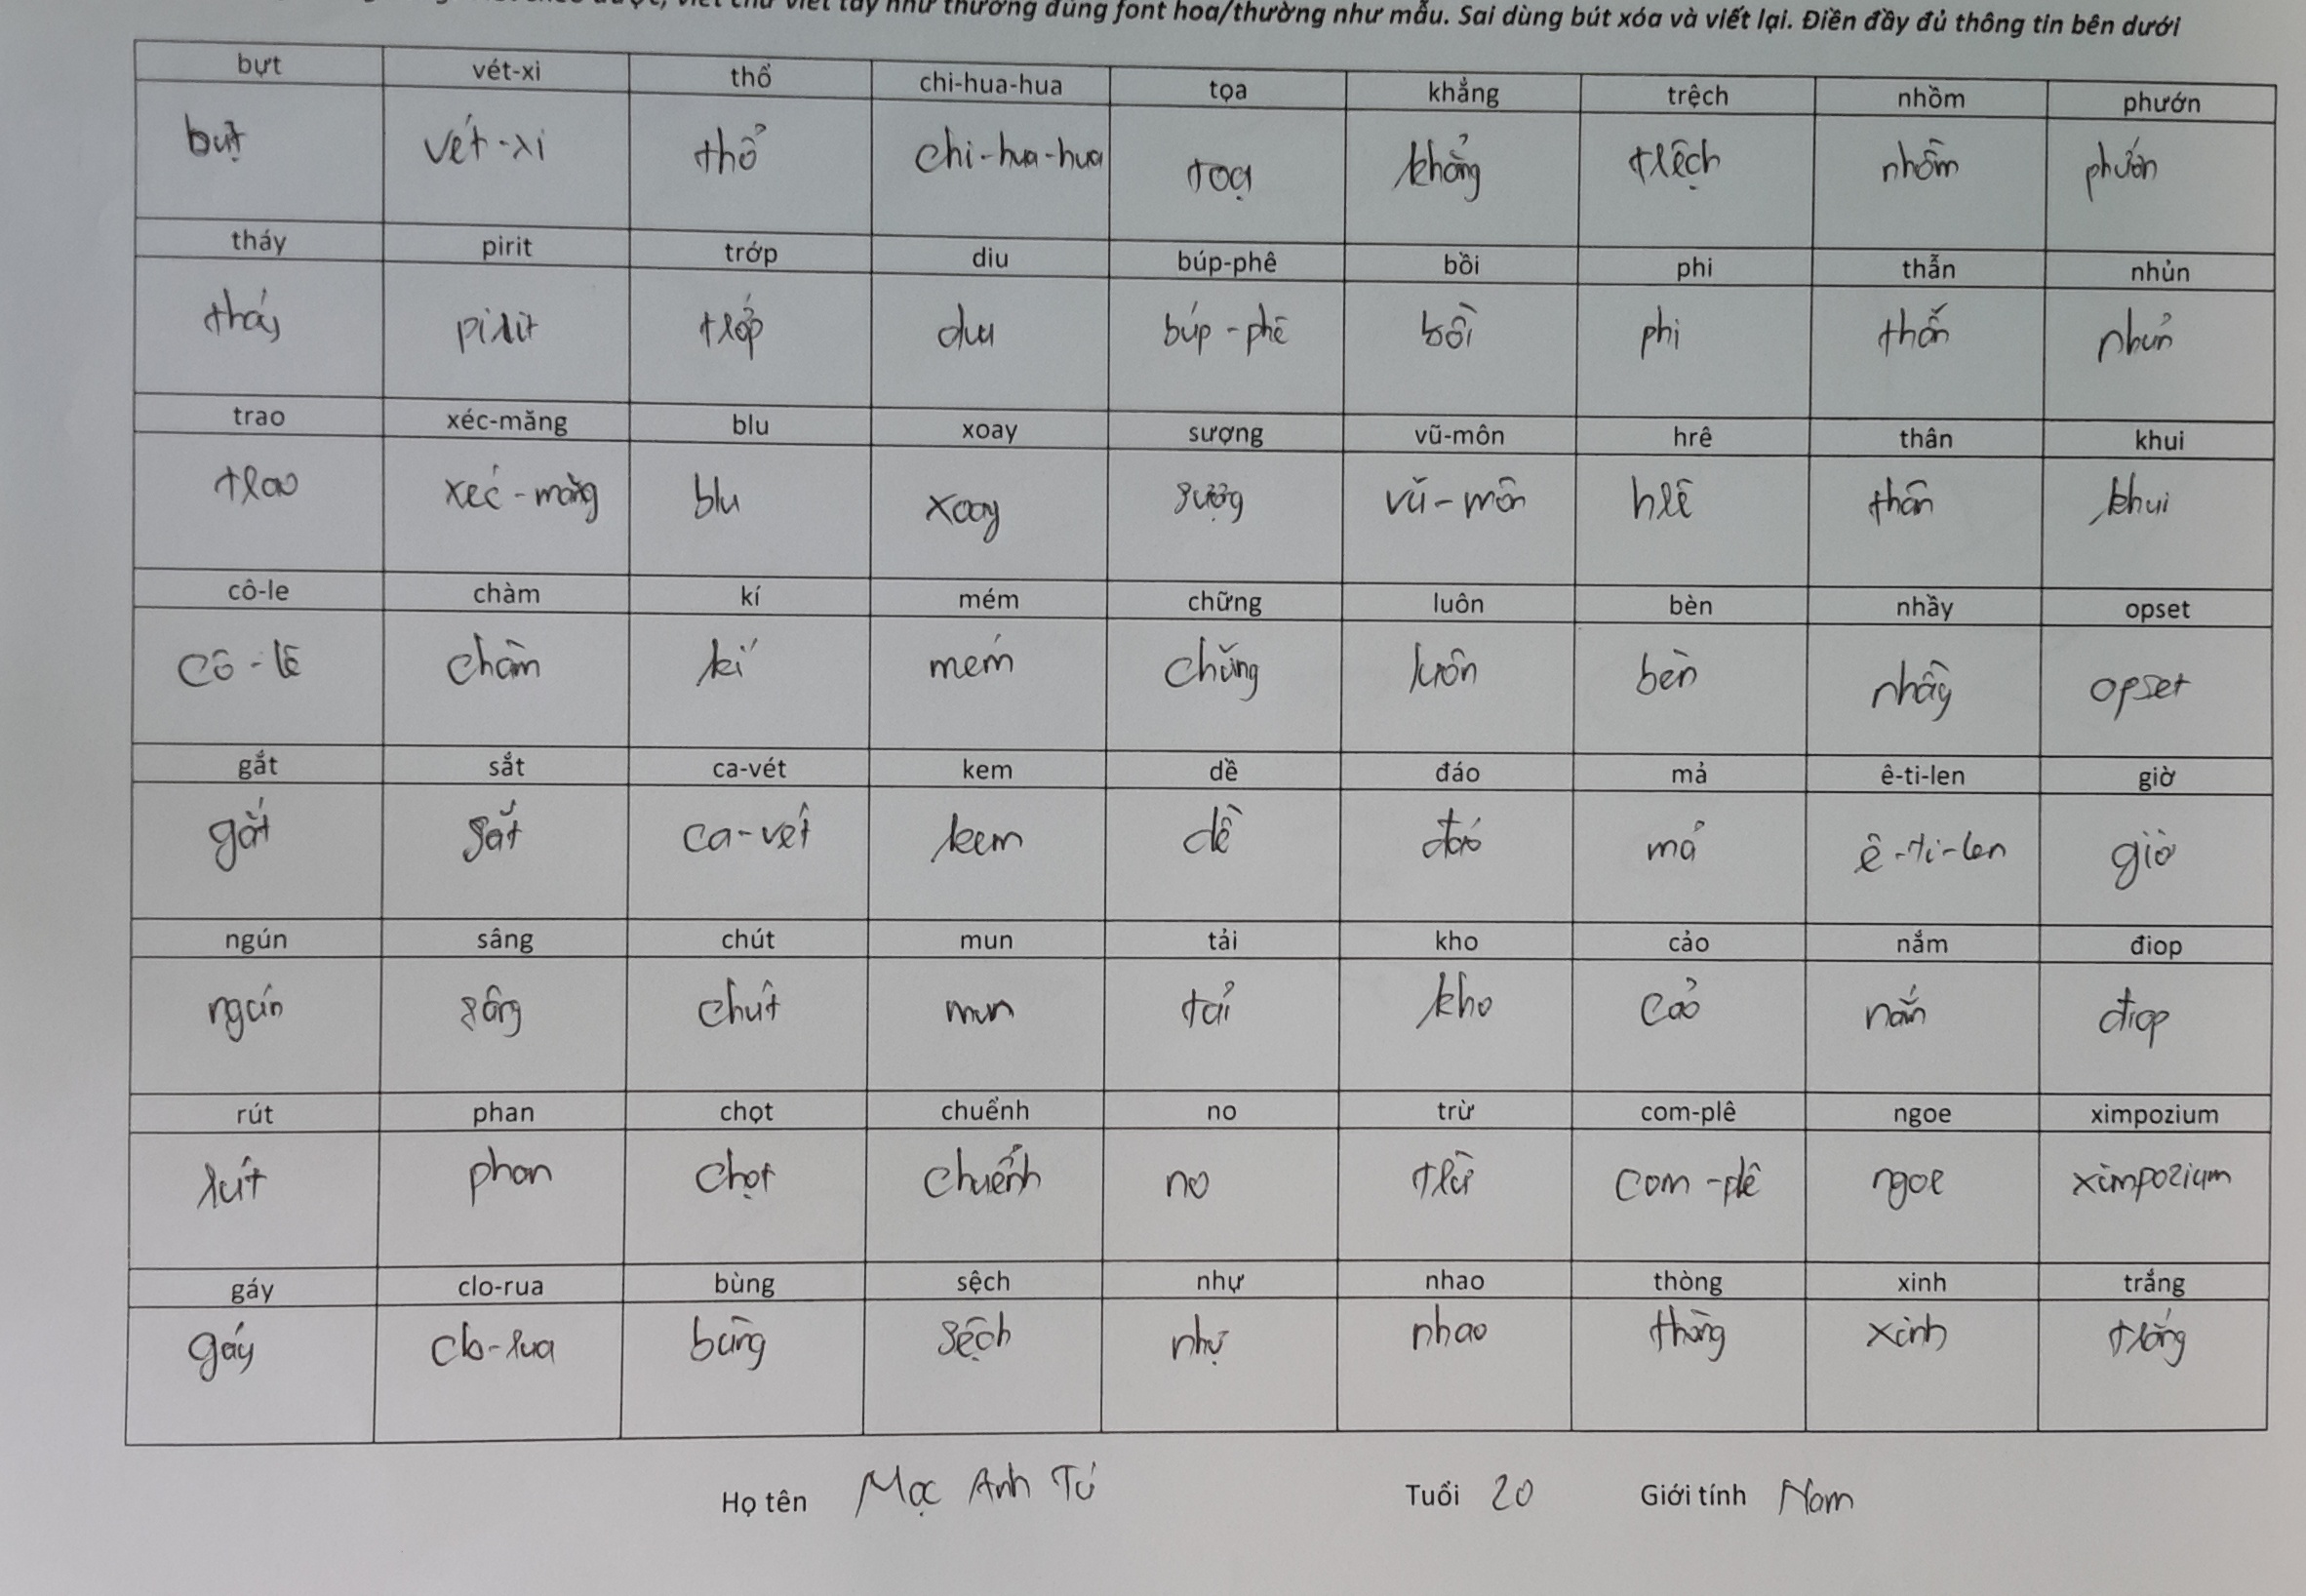 viết chữ viết tay như thường đúng font hoa/thường như mẫu. Sai dùng bút xóa và viết lại. Điền đầy đủ thông tin bên dưới
bựt vét-xi thổ chi-hua-hua tọa khẳng trệch nhồm phướn
bựt vét-xi thổ chi-hua-hua toạ khẳng trệch nhồm phướn
tháy pirit trớp diu búp-phê bồi phi thẫn nhủn
tháy pirit trớp diu búp-phê bồi phi thẫn nhủn
trao xéc-măng blu xoay sượng vũ-môn hrê thân khui
trao xéc-măng blu xoay sượng vũ-môn hrê thân khui
cô-le chàm kí mém chững luôn bèn nhầy opset
cô-lê chàm kí mém chững luôn bèn nhầy opset
gắt sắt ca-vét kem dề đáo mả ê-ti-len giờ
gắt sắt ca-vét kem dề đáo mả ê-ti-len giờ
ngún sâng chút mun tải kho cảo nắm điop
ngún sâng chút mun tải kho cảo nắm điop
rút phan chọt chuểnh no trừ com-plê ngoe ximpozium
rút phan chọt chuểnh no trừ com-plê ngoe ximpozium
gáy clo-rua bùng sệch nhự nhao thòng xinh trắng
gáy clo-rua bùng sệch nhự nhao thòng xinh trắng
Họ tên Mạc Anh Tú Tuổi 20 Giới tính Nam